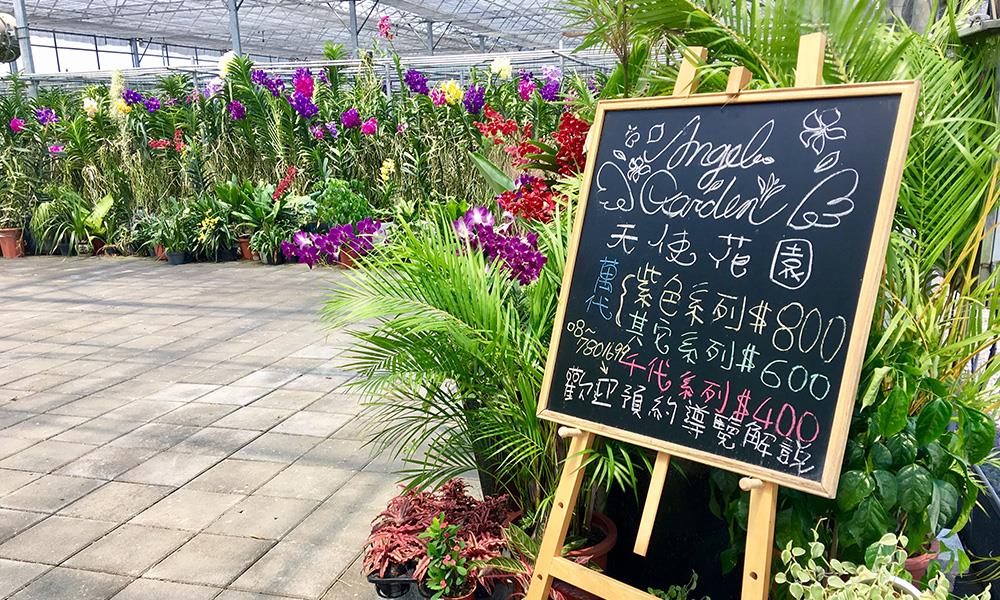 Angel
Garden
天使花園
萬代
紫色系列$800
其它系列$600
08~
7801699
千代系列$400
歡迎預約導覽解說